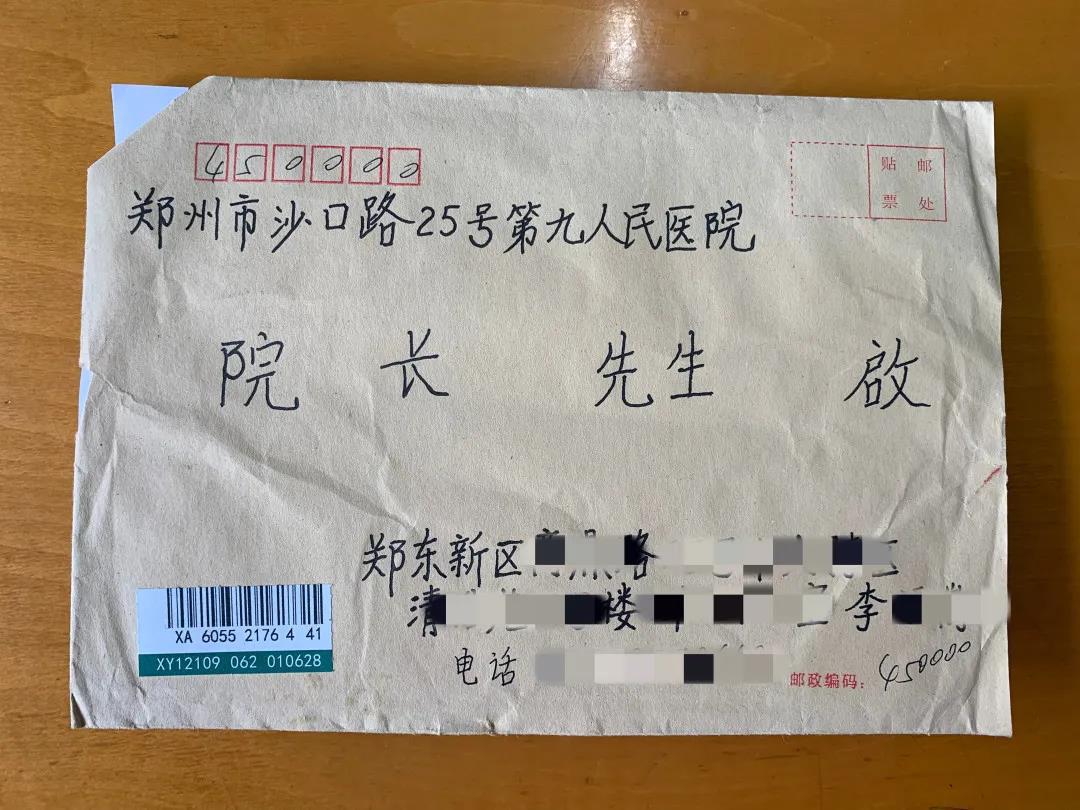 450000
贴 邮
票 处
郑州市沙口路25号第九人民医院
院 长 先生 啟
郑东新区
清 楼 李
电话
邮政编码: 450000
XA 6055 2176 4 41
XY12109 062 010628